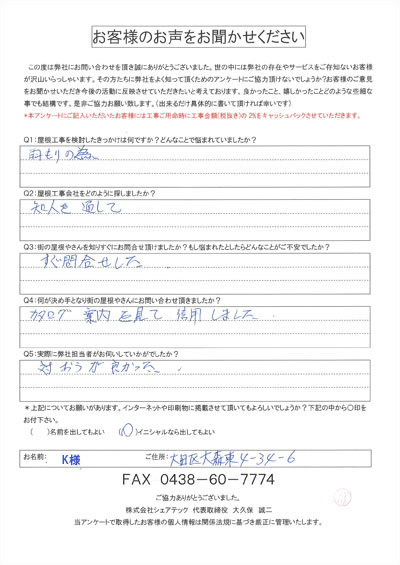 お客様のお声をお聞かせください
この度は弊社にお問い合わせを頂き誠にありがとうございました。世の中には弊社の存在やサービスをご存知ないお客様
が沢山いらっしゃいます。その方たちに弊社をよく知って頂くためのアンケートにご協力頂けないでしょうか?お客様のご意見
をお聞かせいただき今後の活動に反映させていただきたいと考えております。良かったこと、嬉しかったことどのような些細な
事でも結構です。是非ご協力お願い致します。(出来るだけ具体的に書いて頂ければ幸いです)
*本アンケートにご記入いただいたお客様には工事ご用命時に工事金額(税抜き)の2%をキャッシュバックさせていただきます。
Q1:屋根工事を検討したきっかけは何ですか?どんなことで悩まれていましたか?
雨もりの為
Q2:屋根工事会社をどのように探しましたか?
知人を通して
Q3:街の屋根やさんを知りすぐにお問合せ頂けましたか?もし悩まれたとしたらどんなことがご不安でしたか?
すぐ問合せした
Q4:何が決め手となり街の屋根やさんにお問い合わせ頂きましたか?
カタログ 案内を見て 信用しました.
Q5:実際に弊社担当者がお伺いしていかがでしたか?
対おうが良かった
*上記についてお願いがあります。インターネットや印刷物に掲載させて頂いてもよろしいでしょうか?下記の中から○印を
お付下さい。
( )名前を出してもよい (○)イニシャルなら出してもよい
お名前: K様 ご住所: 大田区大森東4-34-6
FAX 0438-60-7774
ご協力ありがとうございました。
株式会社シェアテック 代表取締役 大久保 誠二
当アンケートで取得したお客様の個人情報は関係法規に基づき厳正に管理いたします。